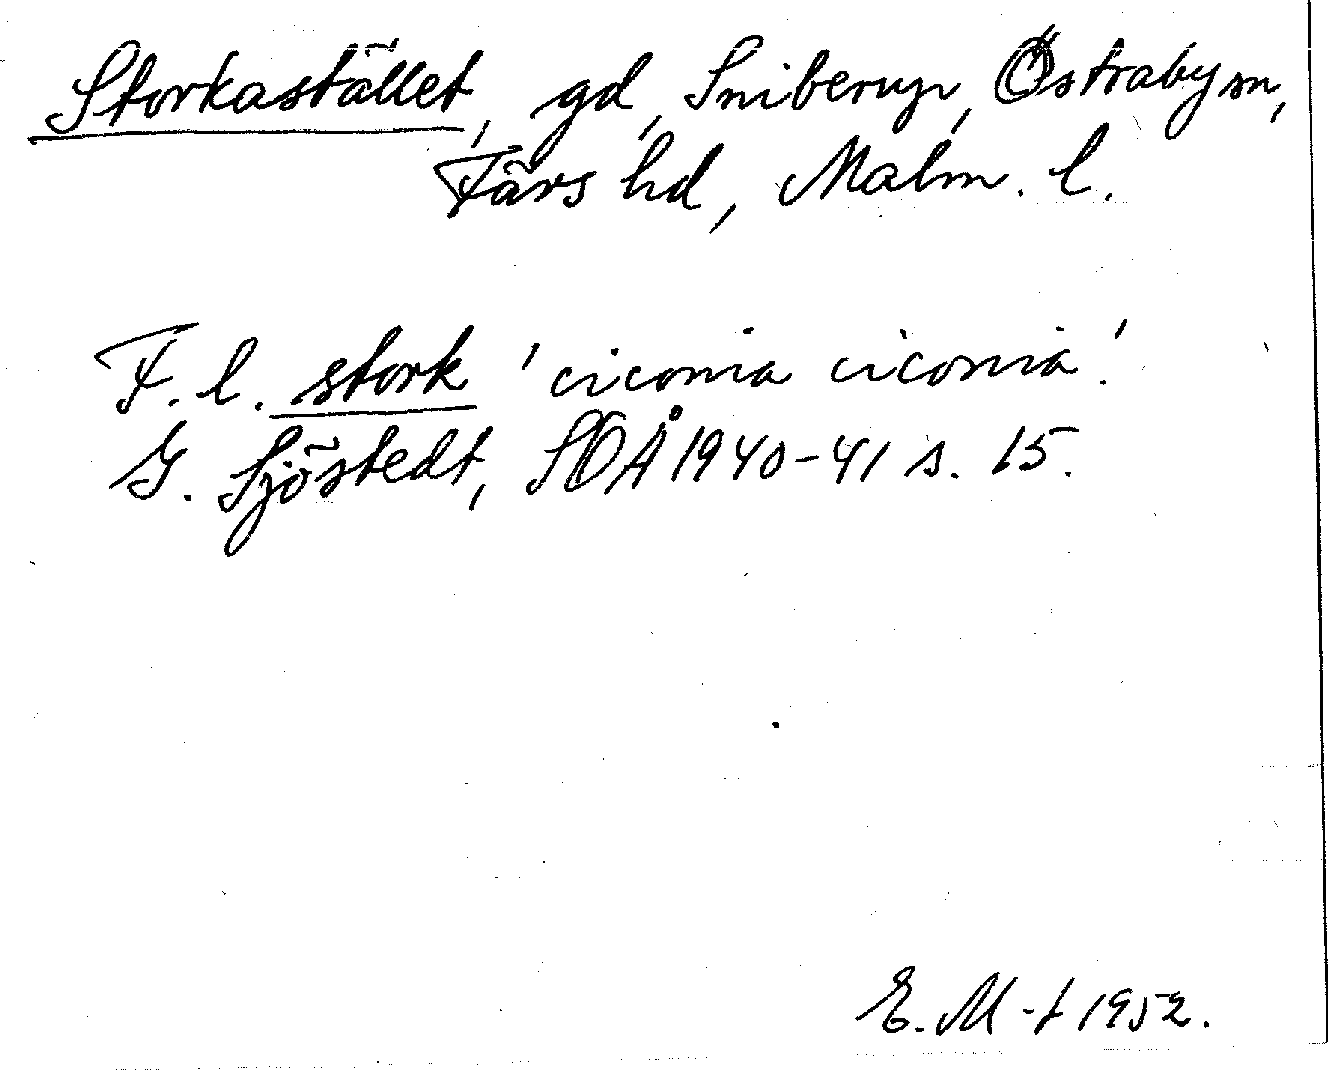 Storkastället, gd, Sniberup, Östraby sn,
Färs hd, Malm. l.
F. l. stork 'ciconia ciconia'.
G. Sjöstedt, SOÅ 1940-41 s. 15.
E. M-t 1952.